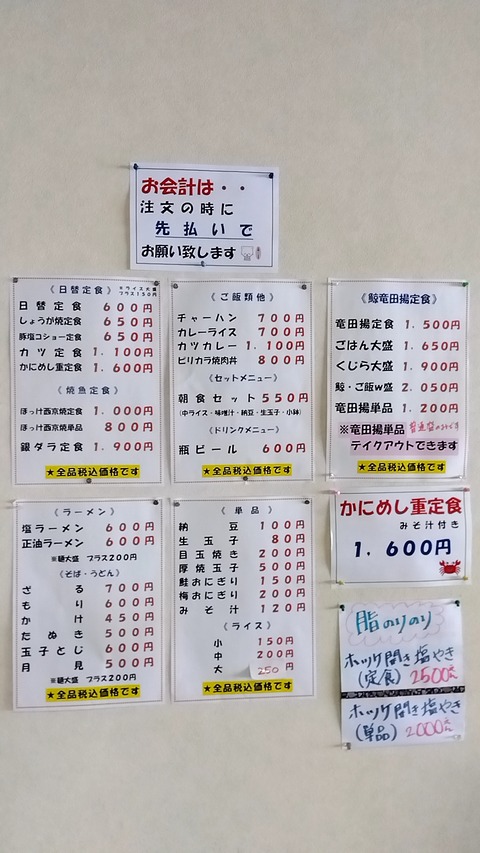 お会計は・・
注文の時に
先払いで
お願い致します
《日替定食》
※ライス大盛
プラス150円
日替定食 600円
しょうが焼定食 650円
豚塩コショー定食 650円
カツ定食 1.100円
かにめし重定食 1.600円
《焼魚定食》
ほっけ西京焼定食 1.000円
ほっけ西京焼単品 800円
銀ダラ定食 1.900円
★全品税込価格です
《ご飯類他》
チャーハン 700円
カレーライス 700円
カツカレー 1.100円
ピリカラ焼肉丼 800円
《セットメニュー》
朝食セット 550円
(中ライス・味噌汁・納豆・生玉子・小鉢)
《ドリンクメニュー》
瓶ビール 600円
★全品税込価格です
《鯨竜田揚定食》
竜田揚定食 1.500円
ごはん大盛 1.650円
くじら大盛 1.900円
鯨・ご飯w盛 2.050円
竜田揚単品 1.200円
※竜田揚単品
テイクアウトできます
★全品税込価格です
《ラーメン》
塩ラーメン 600円
正油ラーメン 600円
※麺大盛 プラス200円
《そば・うどん》
ざる 700円
もり 600円
かけ 450円
たぬき 500円
玉子とじ 600円
月見 500円
※麺大盛 プラス200円
★全品税込価格です
《単品》
納豆 100円
生玉子 80円
目玉焼き 200円
厚焼玉子 500円
鮭おにぎり 150円
梅おにぎり 200円
みそ汁 120円
《ライス》
小 150円
中 200円
大 250円
★全品税込価格です
かにめし重定食
みそ汁付き
1.600円
脂のりのり
ホッケ開き塩やき
(定食) 2500円
ホッケ開き塩やき
(単品) 2000円